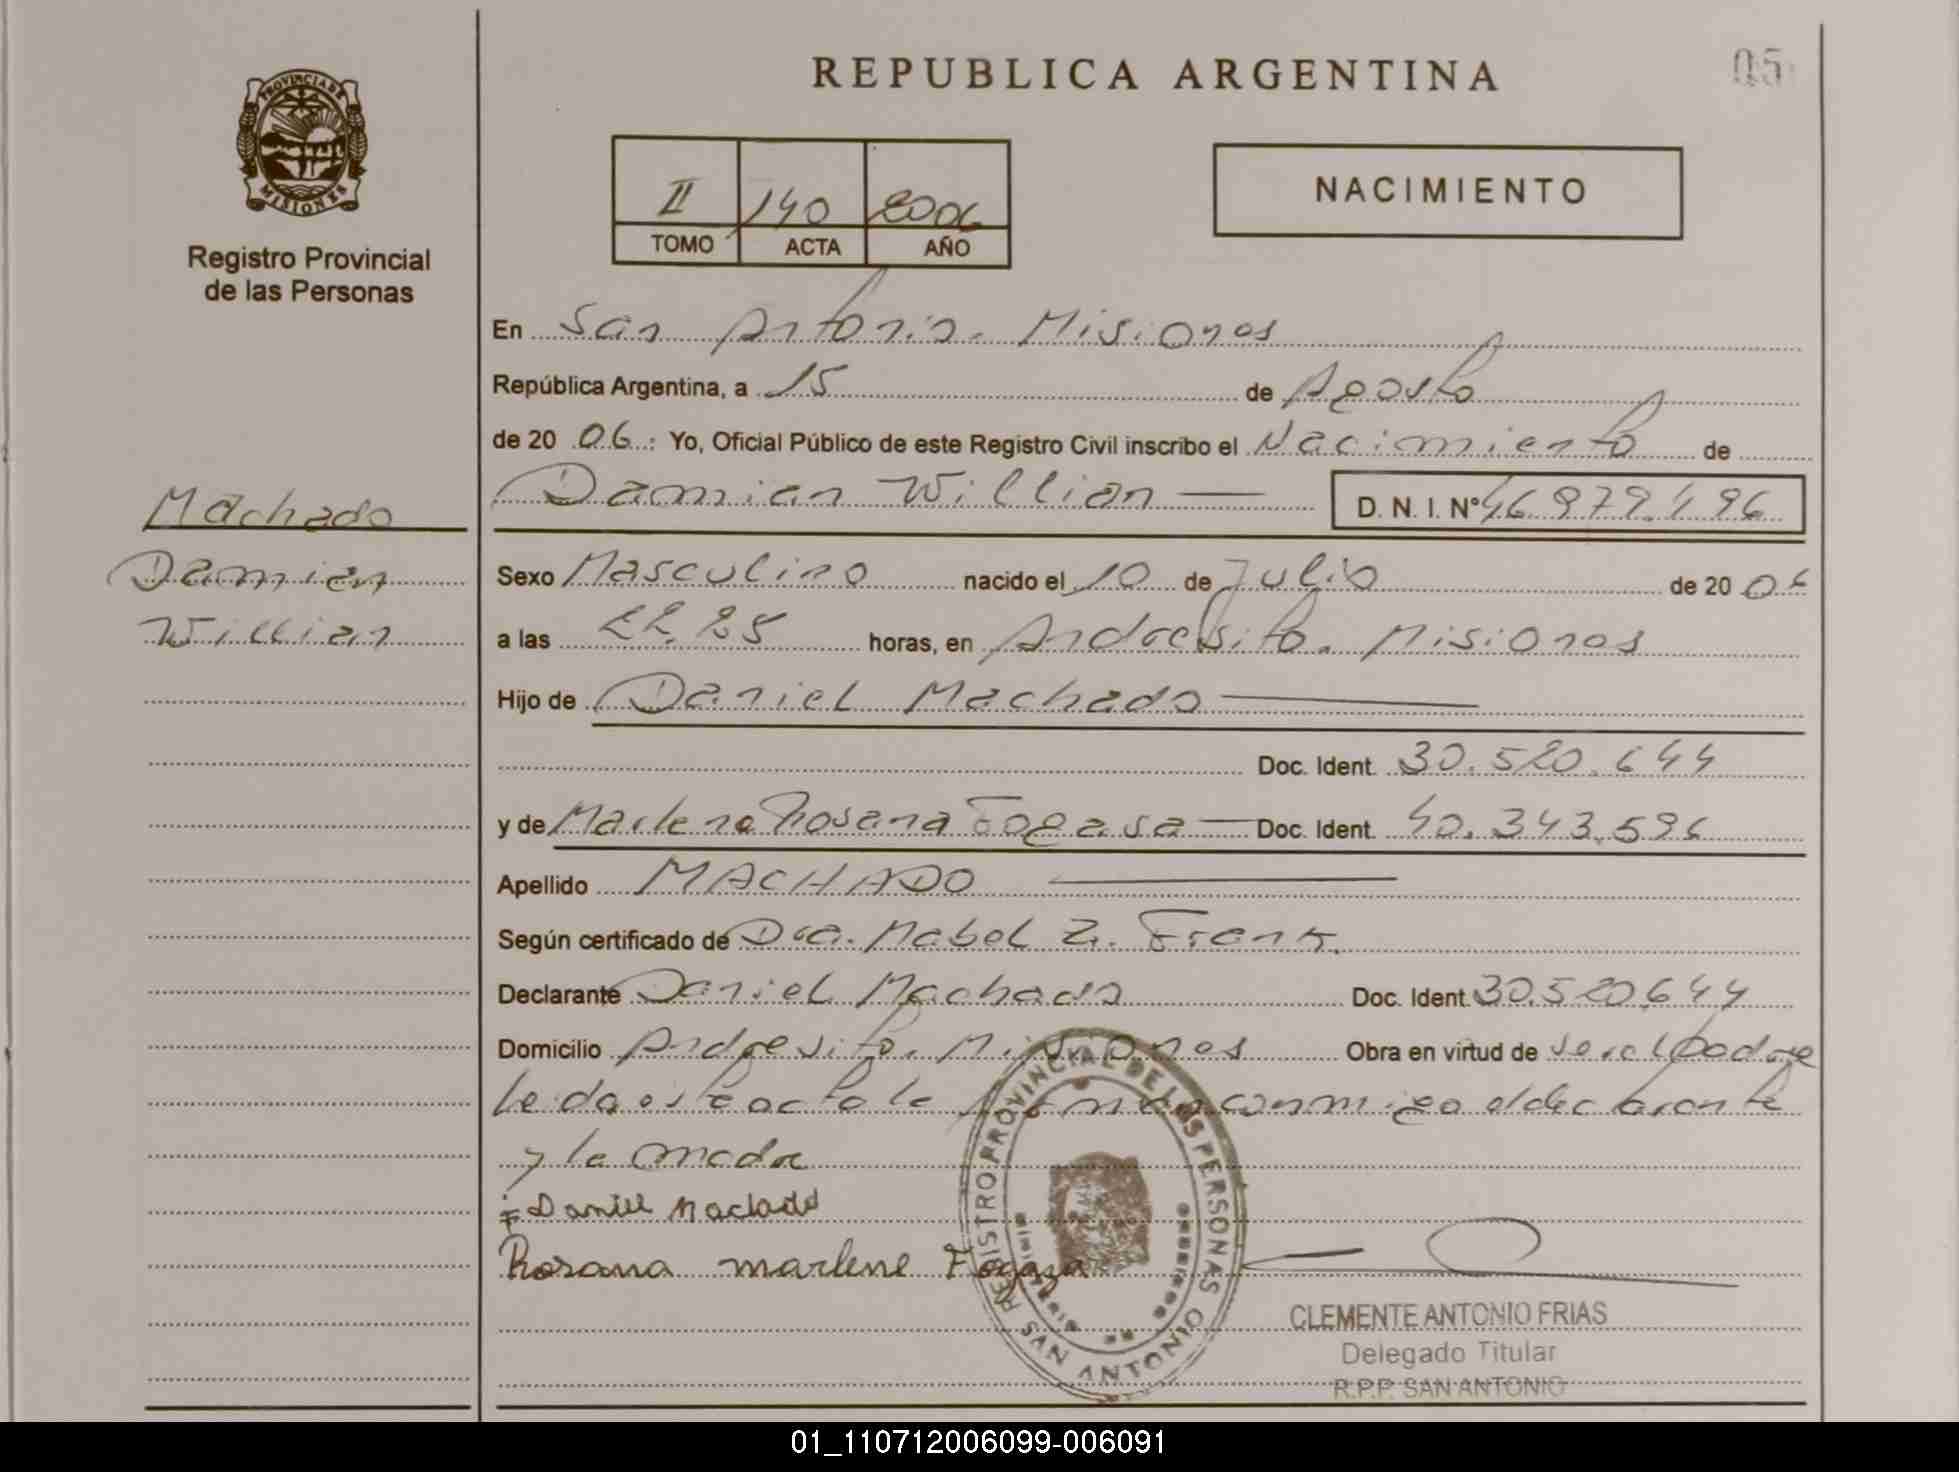 REPUBLICA ARGENTINA
05
PROVINCIA DE
MISIONES
Registro Provincial
de las Personas
II 140 2006
TOMO ACTA AÑO
NACIMIENTO
En San Antonio. Misiones
República Argentina, a 15 de Agosto
de 20 06 : Yo, Oficial Público de este Registro Civil inscribo el Nacimiento de
Damian Willian D. N. I. Nº 46.979.496
Machado
Damian
Willian
Sexo Masculino nacido el 10 de Julio de 20 06
a las 22.25 horas, en Andresito. Misiones
Hijo de Daniel Machado
Doc. Ident. 30.520.644
y de Marlene Rosana Fogasa Doc. Ident. 40.343.596
Apellido MACHADO
Según certificado de Dra. Mabel Z. Frank.
Declarante Daniel Machado Doc. Ident. 30.520.644
Domicilio Andresito. Misiones Obra en virtud de ser el padre
leida esta acta la firman conmigo el declarante
y la madre
Daniel Machado
Rosana marlene Fogaza
REGISTRO PROVINCIAL DE LAS PERSONAS
SAN ANTONIO
CLEMENTE ANTONIO FRIAS
Delegado Titular
R.P.P. SAN ANTONIO
01_110712006099-006091